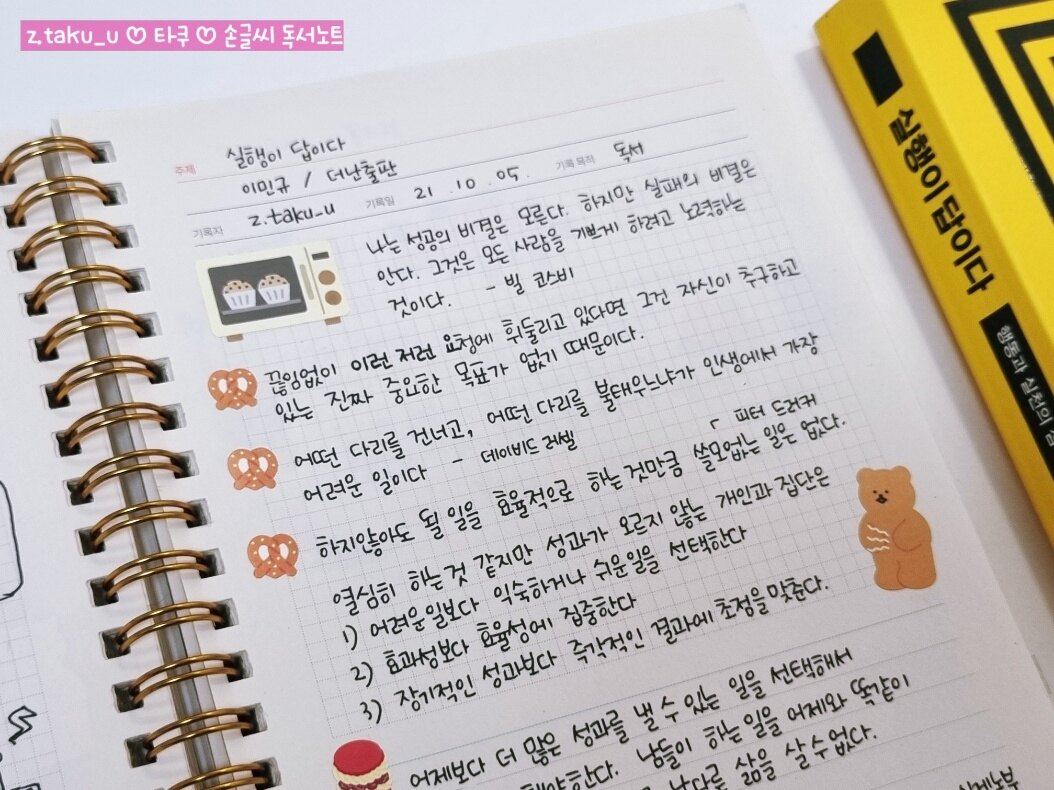 z.taku_u ♡ 타쿠 ♡ 손글씨 독서노트
주제 실행이 답이다
이민규 / 더난출판
기록자 z.taku_u 기록일 21 . 10 . 05. 기록 목적 독서
나는 성공의 비결은 모른다. 하지만 실패의 비결은
안다. 그것은 모든 사람을 기쁘게 하려고 노력하는
것이다. - 빌 코스비
끊임없이 이런 저런 요청에 휘둘리고 있다면 그건 자신이 추구하고
있는 진짜 중요한 목표가 없기 때문이다.
어떤 다리를 건너고, 어떤 다리를 불태우느냐가 인생에서 가장
어려운 일이다 - 데이비드 러셀
「 피터 드러커
하지않아도 될 일을 효율적으로 하는것만큼 쓸모없는 일은 없다.
열심히 하는것 같지만 성과가 오르지 않는 개인과 집단은
1) 어려운일보다 익숙하거나 쉬운일을 선택한다
2) 효과성보다 효율성에 집중한다
3) 장기적인 성과보다 즉각적인 결과에 초점을 맞춘다.
어제보다 더 많은 성과를 낼 수 있는 일을 선택해서
해야한다. 남들이 하는 일을 어제와 똑같이
남다른 삶을 살 수 없다.
실행이 답이다
행동과 실천의